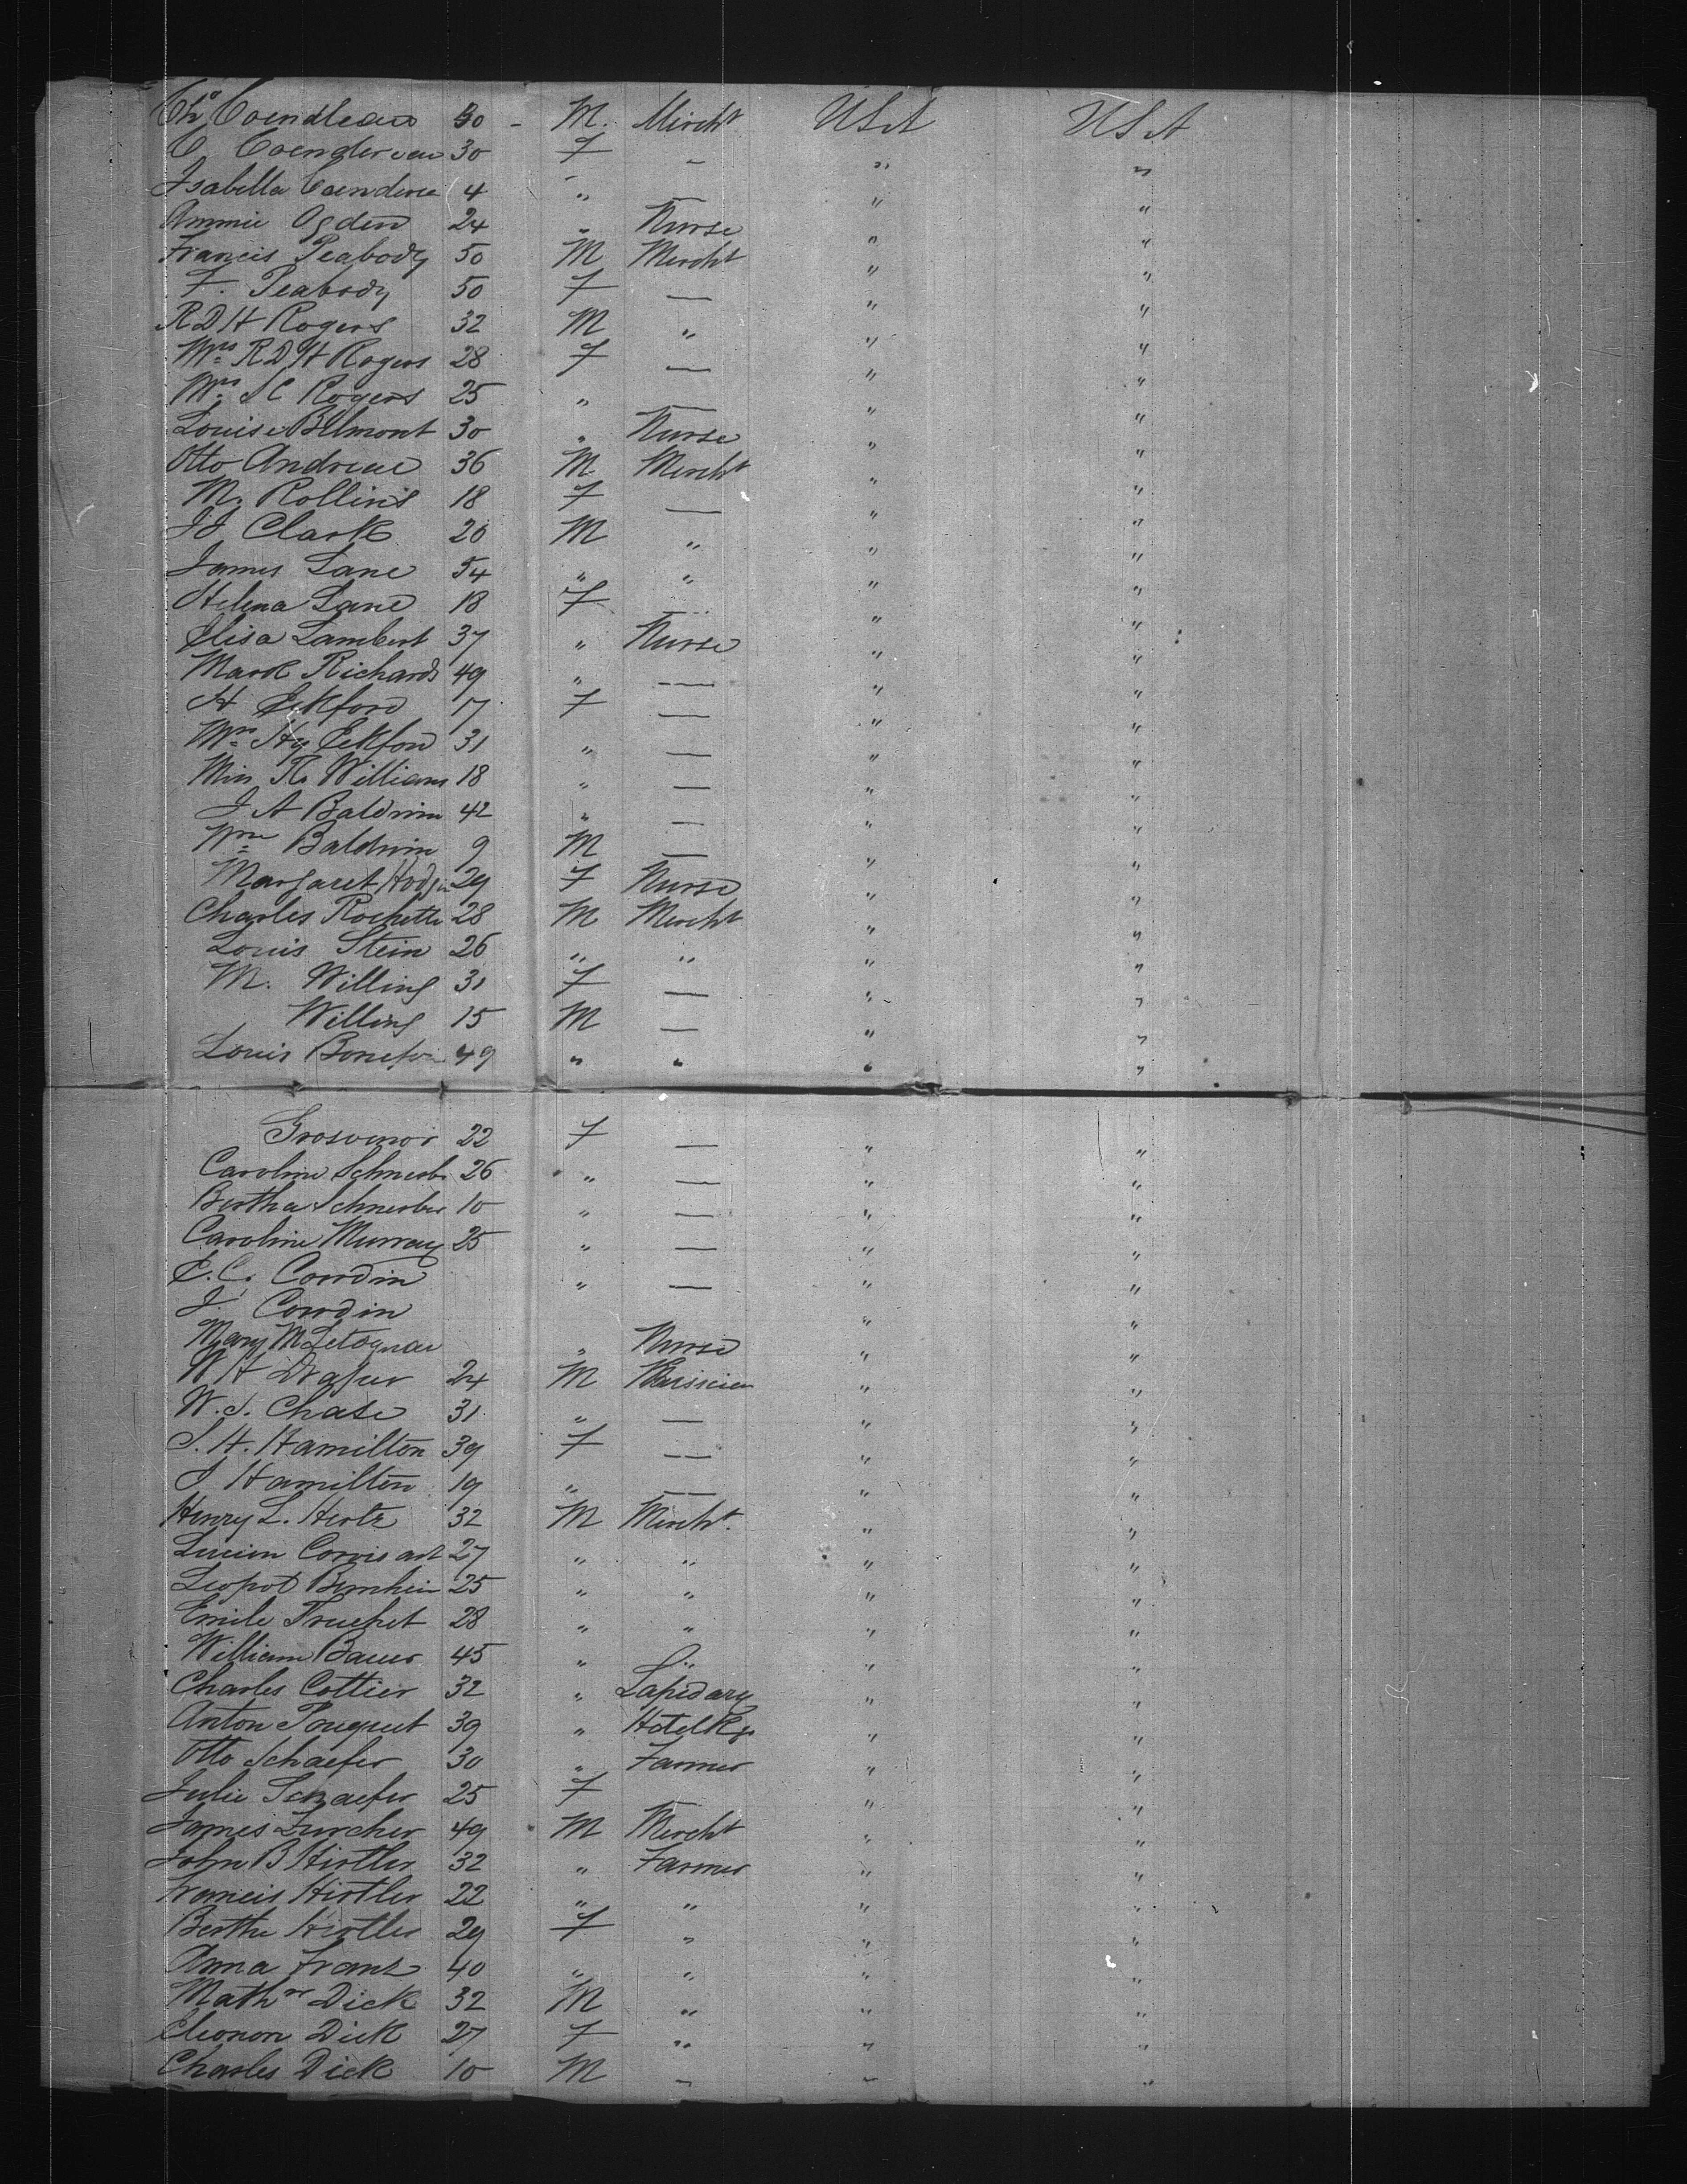 Chs 30 - M. Mercht USA USA
C 30 F - " "
Isabella 4 " — " "
Ammie Ogden 24 " Nurse " "
Francis Peabody 50 M Mercht " "
F. Peabody 50 F — " "
R D H Rogers 32 M " " "
Mrs R D H Rogers 28 F — " "
Mrs S C Rogers 25 " — " "
Louise Belmont 30 " Nurse " "
Otto Andreae 36 M Mercht " "
M. Rollins 18 F — " "
Clark 20 M " " "
James Lane 54 " " " "
Helena Lane 18 F " "
Elisa Lambert 37 " Nurse " "
Mark Richards 49 " — " "
H Eckford 17 F — " "
Mrs Hy Eckford 31 " — " "
Miss R. Williams 18 " — " "
J A Baldwin 42 " — " "
Wm Baldwin 9 M — " "
Margaret 29 F Nurse " "
Charles Rochette 28 M Mercht " "
Louis Stein 26 " " " "
M. Willing 31 F — " "
Willing 15 M — " "
Louis 49 " " " "
Grosvenor 22 F — " "
Caroline 26 " — " "
Bertha 10 " — " "
Caroline Murray 25 " — " "
E. C. Cowdin " — " "
J. Cowdin " "
Mary " Nurse " "
W H Draper 24 M " "
W. S. Chase 31 " — " "
S. H. Hamilton 39 F — " "
J. Hamilton 19 " — " "
Henry L. Hertz 32 M Mercht. " "
Lucien 27 " " " "
Leopold Bernheim 25 " " " "
Emile Truchet 28 " " " "
William Bauer 45 " " " "
Charles Cottier 32 " Lapidary " "
Anton Pouquet 39 " Hotel Kp " "
Otto Schaefer 30 " Farmer " "
Julie Schaefer 25 F " "
James Zurcher 49 M Mercht " "
John B Hirtler 32 " Farmer " "
Francis Hirtler 22 " " " "
Berthe Hirtler 29 F " " "
Anna Franz 40 " " " "
Dick 32 M " " "
Eleonor Dick 27 F " " "
Charles Dick 10 M " " "